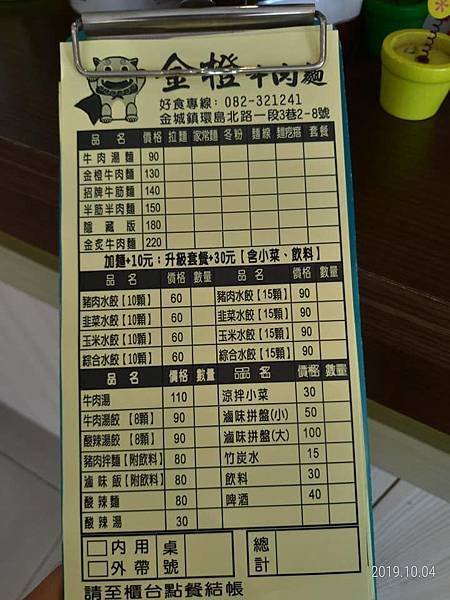 金橙牛肉麵
好食專線: 082-321241
金城鎮環島北路一段3巷2-8號
品 名 價格 拉麵 家常麵 冬粉 麵線 麵疙瘩 套餐
牛肉湯麵 90
金橙牛肉麵 130
招牌牛筋麵 140
半筋半肉麵 150
隱藏版 180
金炙牛肉麵 220
加麵+10元；升級套餐+30元【含小菜、飲料】
品 名 價格 數量 品 名 價格 數量
豬肉水餃【10顆】 60 豬肉水餃【15顆】 90
韭菜水餃【10顆】 60 韭菜水餃【15顆】 90
玉米水餃【10顆】 60 玉米水餃【15顆】 90
綜合水餃【10顆】 60 綜合水餃【15顆】 90
品 名 價格 數量 品 名 價格 數量
牛肉湯 110 涼拌小菜 30
牛肉湯餃【8顆】 90 滷味拼盤(小) 50
酸辣湯餃【8顆】 90 滷味拼盤(大) 100
豬肉拌麵【附飲料】 80 竹炭水 15
滷味飯【附飲料】 80 飲料 30
酸辣麵 80 啤酒 40
酸辣湯 30
內用 桌 總
外帶 號 計
請至櫃台點餐結帳
2019.10.04